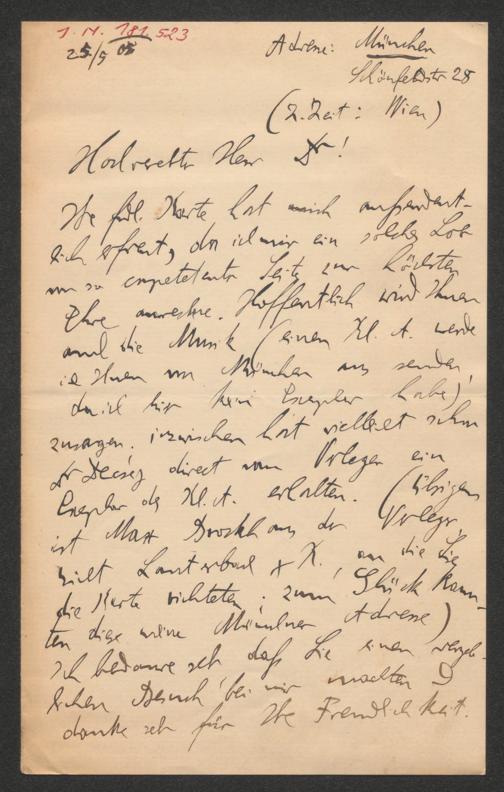 J. N. 181.523
25/5 05
Adresse: München
Schönfeldstr 28
(Z. Zeit: Wien)
Hochverehrter Herr Dr!
Ihe frdl. Karte hat mich außerordent-
lich erfreut, da ich mir ein solches Lob
von so competenter Seite zur höchsten
Ehre anrechne. Hoffentlich wird Ihnen
auch die Musik (einen Kl. A. werde
ich Ihnen von München aus senden,
da ich hier kein Exemplar habe)
zusagen. inzwischen hat vielleicht schon
Dr Decsey direct vom Verleger ein
Exemplar des Kl. A. erhalten. (Übrigens
ist Max Brockhaus der Verleger,
nicht Lauterbach & K., an die Sie
die Karte richteten; zum Glück kann-
ten diese meine Münchner Adresse)
Ich bedaure sehr daß Sie einen vergeb-
lichen Besuch bei mir machten &
danke sehr für Ihe Freundlichkeit.